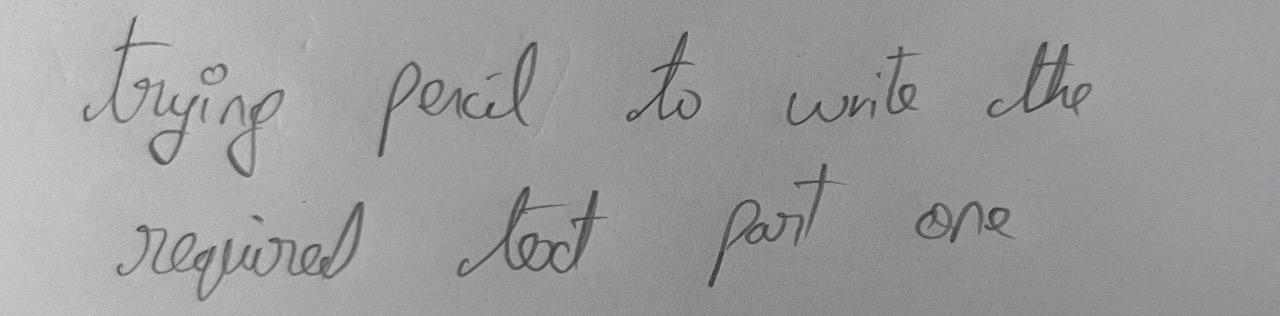 trying pencil to write the
required text part one